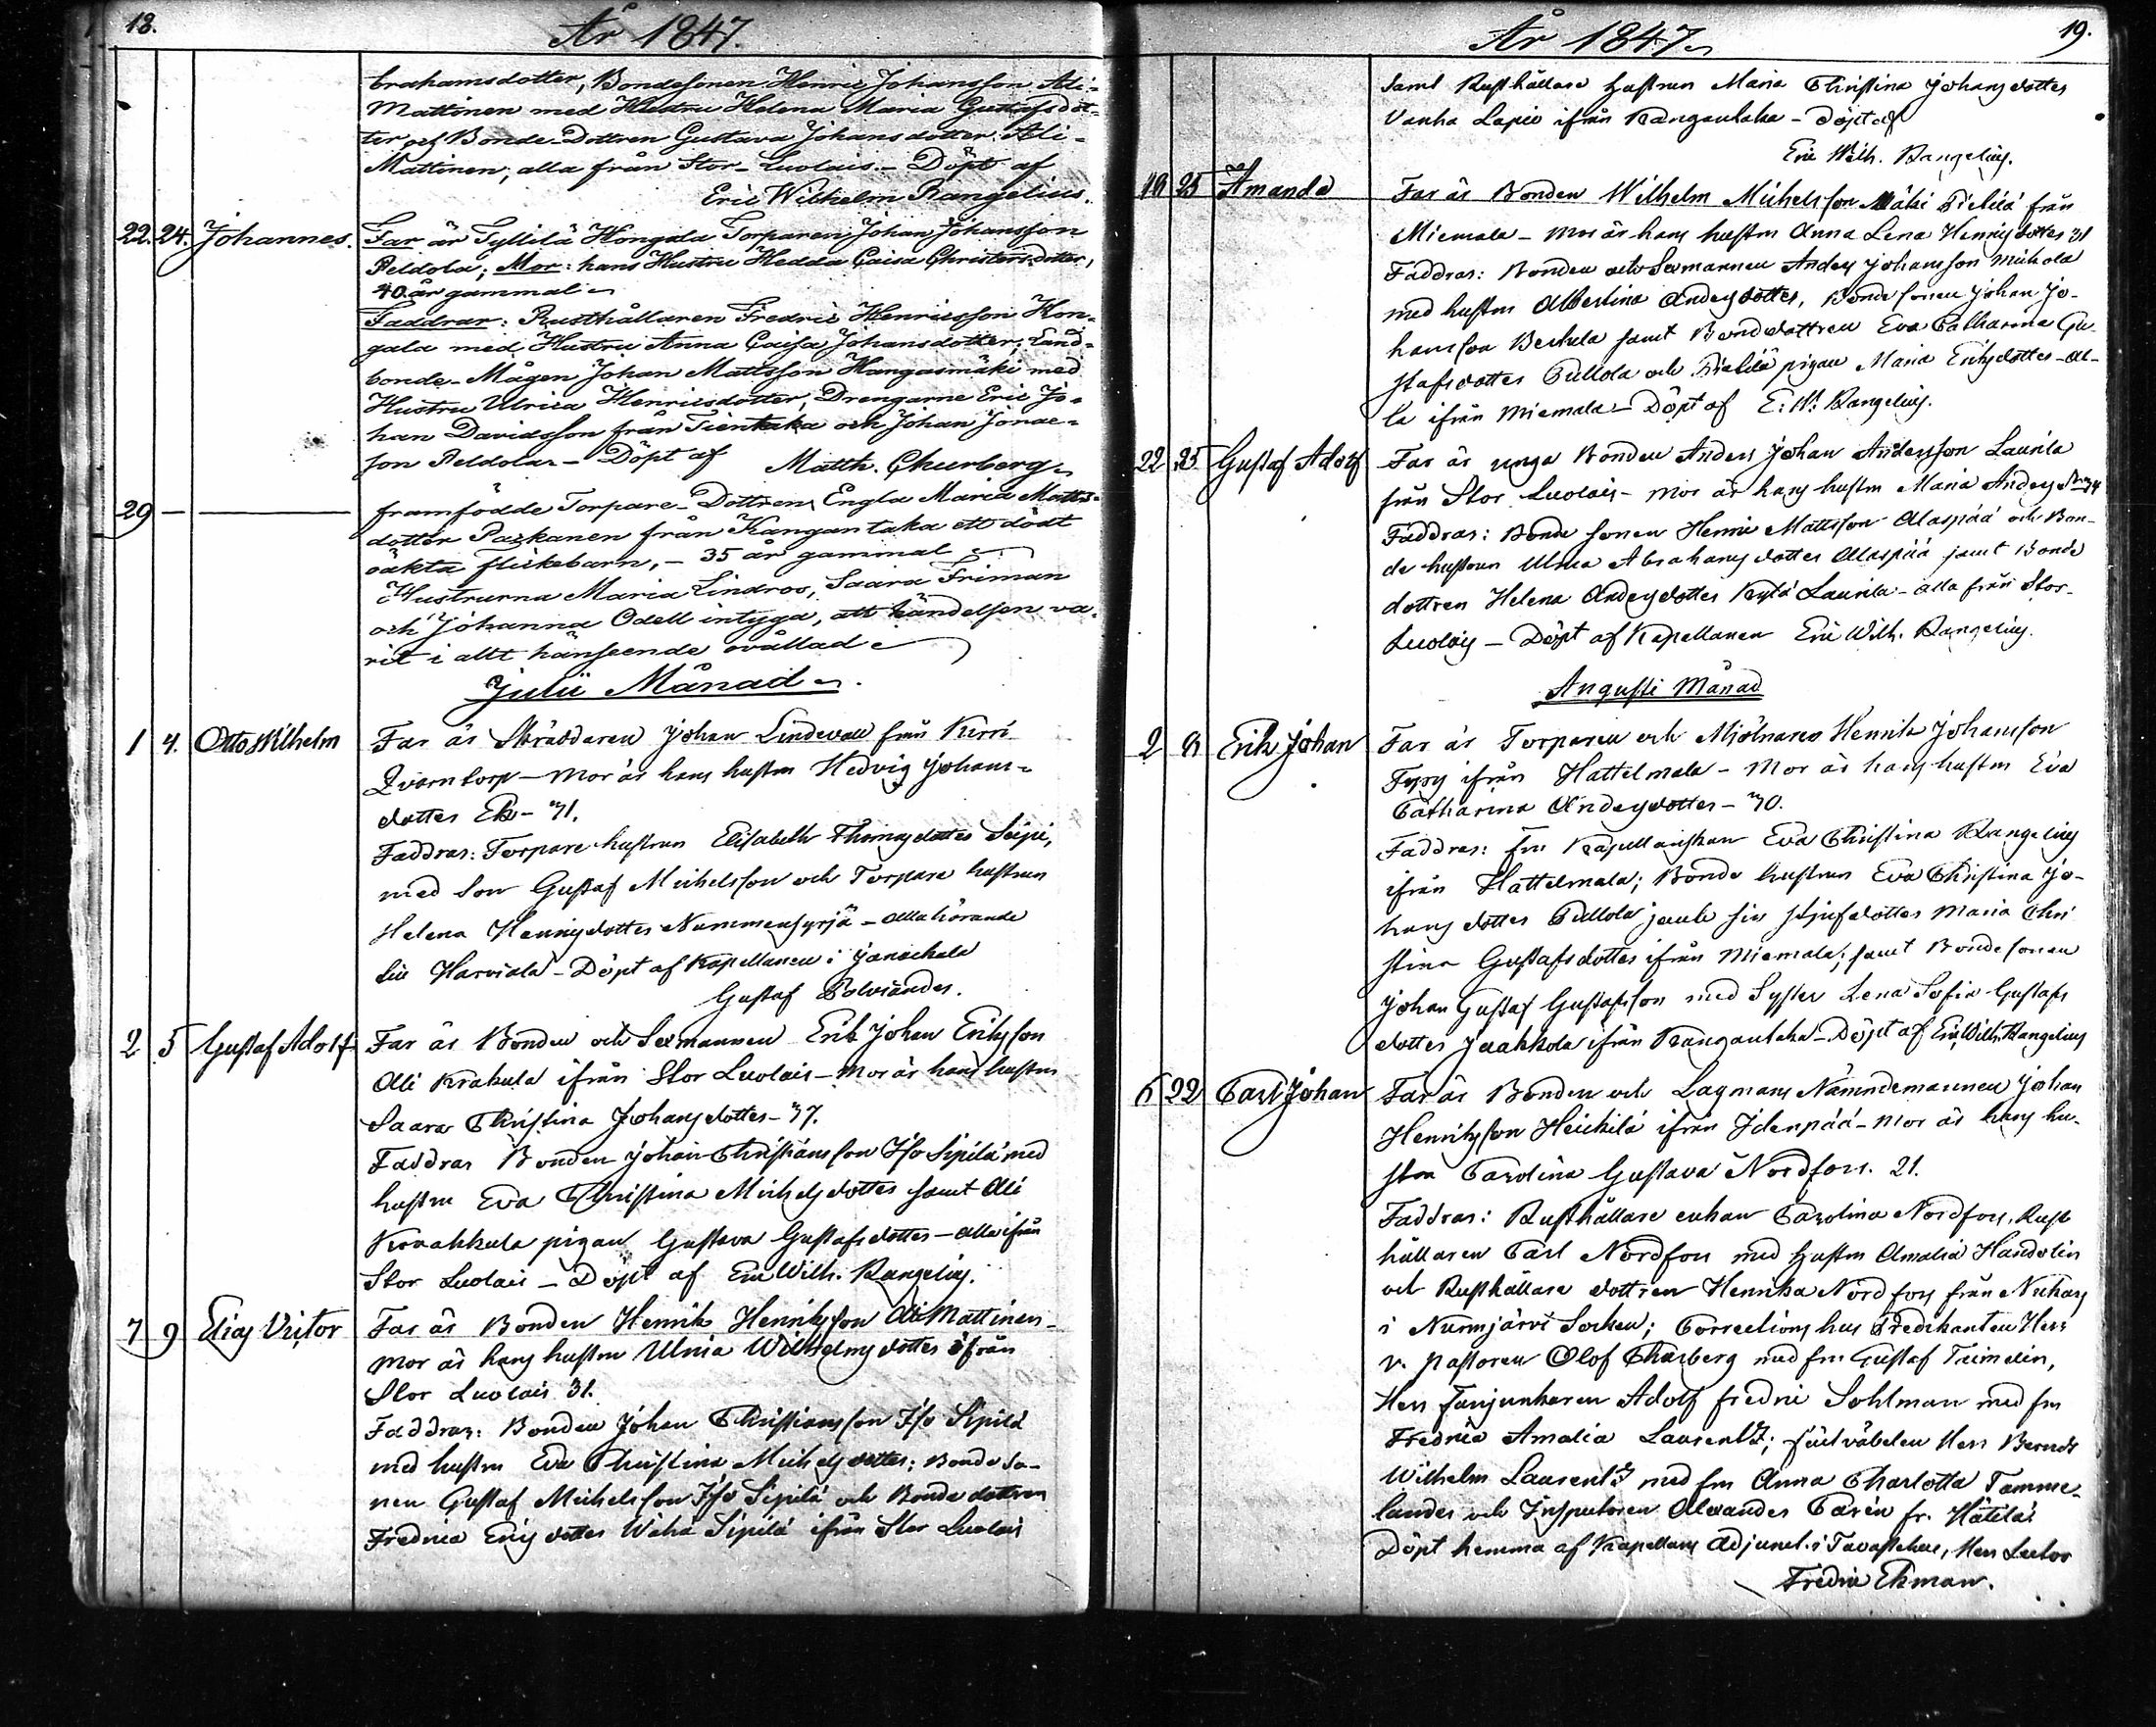 18.
År 1847.
brahamsdotter, Bondesonen Henric Johansson Ali-
Mattinen med Hustru Helena Maria Gustafsdot-
ter och Bonde-Dottren Gustava Johansdotter Ali-
Mattinen, alla från Stor-Luolais.- Döpt af
Eric Wilhelm Rangelius.
22. 24. Johannes. Far är Syllilä Hongala Torparen Johan Johansson
Peldola; Mor: hans Hustru Hedda Caisa Christersdotter,
40. år gammal
Faddrar: Rusthållaren Fredric Henricsson Hon-
gala med Hustru Anna Caisa Johansdotter; Land-
bonde-Mågen Johan Mattsson Hangasmäki med
Hustru Ulrica Henricsdotter, Drengarne Eric Jo-
han Davidsson från Tientaka och Johan Jonae-
son Peldola - Döpt af Matth. Churberg
29 — — framfödde Torpare-Dottren Engla Maria Matts-
dotter Paskanen från Kangantaka ett dödt
oäkta flickebarn, - 35 år gammal
Hustrurna Maria Lindroo, Saara Friman
och Johanna Odell intyga, att händelsen va-
rit i allt hänseende ovållad
Julii Månad
1 4. Otto Wilhelm Far är Skräddaren Johan Lindevall från Kirri
Qvarn torp - Mor är hans hustru Hedvig Johans-
dotter Ek - 31.
Faddrar: Torpare hustrun Elisabeth Thomasdotter Seipi,
med Son Gustaf Michelsson och Torpare hustrun
Helena Henrigsdotter Nummensyrjä - alla hörande
till Harviala - Döpt af Kapellanen i Janackala
Gustaf Polviander.
2 5 Gustaf Adolf Far är Bonden och Sexmannen Erik Johan Eriksson
Olli Krakula ifrån Stor Luolais - Mor är hans hustru
Saara Christina Johansdotter - 37.
Faddrar Bonden Johan Christiansson Iso Sipilä med
hustru Eva Christina Michelsdotter samt Olli
Krouakkula pigan Gustava Gustafsdotter - alla ifrån
Stor Luolais - Döpt af Eric Wilh. Rangelius.
7 9 Elias Victor Far är Bonden Henrik Henriksson Ali Mattinen -
mor är hans hustru Ulrica Wilhelmsdotter ifrån
Stor Luolais 31.
Faddrar: Bonden Johan Christiansson Iso Sipilä
med hustru Eva Christina Michelsdotter; Bonde so-
nen Gustaf Michelsson Iso Sipilä och Bonde dottren
Fredrica Ericsdotter Wähä Sipilä ifrån Stor Luolais
År 1847
19.
samt Rusthållare hustrun Maria Christina Johansdotter
Vanha Lapio ifrån Kangantaka - Döpt af
Eric Wilh. Rangelius.
19 25 Amanda Far är Bonden Wilhelm Michelsson Mäki Pielilä från
Miemala - Mor är hans hustru Anna Lena Henrigsdotter 31
Faddrar: Bonden och Sexmannen Anders Johansson Mickola
med hustru Albertina Andersdotter, Bonde sonen Johan Jo-
hansson Beskela samt Bondedottren Eva Catharina Gu-
stafsdotter Pullola och Pielilä pigan Maria Eriksdotter - al-
la ifrån Miemala - Döpt af E. W. Rangelius.
22 25 Gustaf Adolf Far är unga Bonden Anders Johan Andersson Laurila
från Stor Luolais - mor är hans hustru Maria Anders
Faddrar: Bonde sonen Henric Mattsson Alaspää och Bon-
de hustrun Ulrica Abrahamsdotter Alaspää samt Bonde
dottren Helena Andersdotter Kylä Laurila - alla från Stor-
Luolais - Döpt af Kapellanen Eric Wilh. Rangelius.
Augusti Månad
2 8 Erik Johan Far är Torparen och Mjölnaren Henrik Johansson
Fyrg ifrån Hattelmala - Mor är hans hustru Eva
Catharina Andersdotter - 30.
Faddrar: fru Kapellanskan Eva Christina Rangelius
ifrån Hattelmala; Bonde hustrun Eva Christina Jo-
hansdotter Pullola jemte sin styfdotter Maria Chri
stina Gustafsdotter ifrån Miemala; samt Bondesonen
Johan Gustaf Gustafsson med Syster Lena Sofia Gustafs
dotter Jaakkola ifrån Kangantaka - Döpt af Eric Wilh. Rangelius
6 22 Carl Johan Far är Bonden och Lagmans Nämndemannen Johan
Henriksson Heickilä ifrån Idenpää - Mor är hans hu-
stru Carolina Gustava Nordfors. 21.
Faddrar: Rusthållare enkan Carolina Nordfors, Rust
hållaren Carl Nordfors med hustru Amalia Handolin
och Rusthållare dottren Henrika Nordfors från
i Nurmijärvi Socken; Corrections hus Predikanten Herr
v. Pastoren Olof Churberg med fru Gustaf Trimelin,
Herr Fanjunkaren Adolf Fredric Sohlman med fru
Fredrica Amalia Laurentz; fältväbelen Herr Berndt
Wilhelm Laurentz med fru Anna Charlotta Tamme-
lander och Inspectoren Alexander Carén fr. Hätilä
Döpt hemma af Kapellans Adjunct. i Tavastehus, Herr Lector
Fredric Ekman.